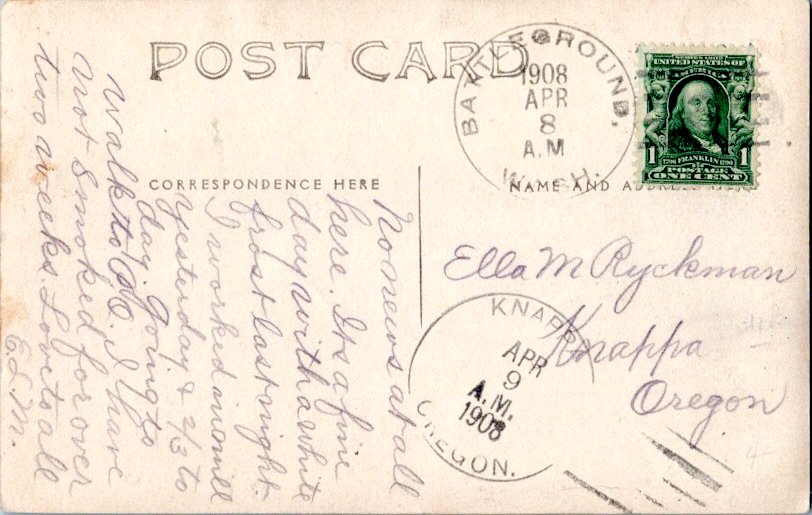 POST CARD
BATTLEGROUND,
1908
APR
8
A.M
WASH.
UNITED STATES OF
AMERICA
1 1
FRANKLIN
POSTAGE
ONE CENT
CORRESPONDENCE HERE
NAME AND ADDRESS HERE
No news at all
here. Its a fine
day with a white
frost last night.
I worked in a mill
yesterday & 2/3 to
day. Going to
walk to P.O. I have
not smoked for over
two weeks. Love to all
E.L.M.
Ella M Ryckman
Knappa
Oregon
KNAPPA
APR
9
A.M.
1908
OREGON.